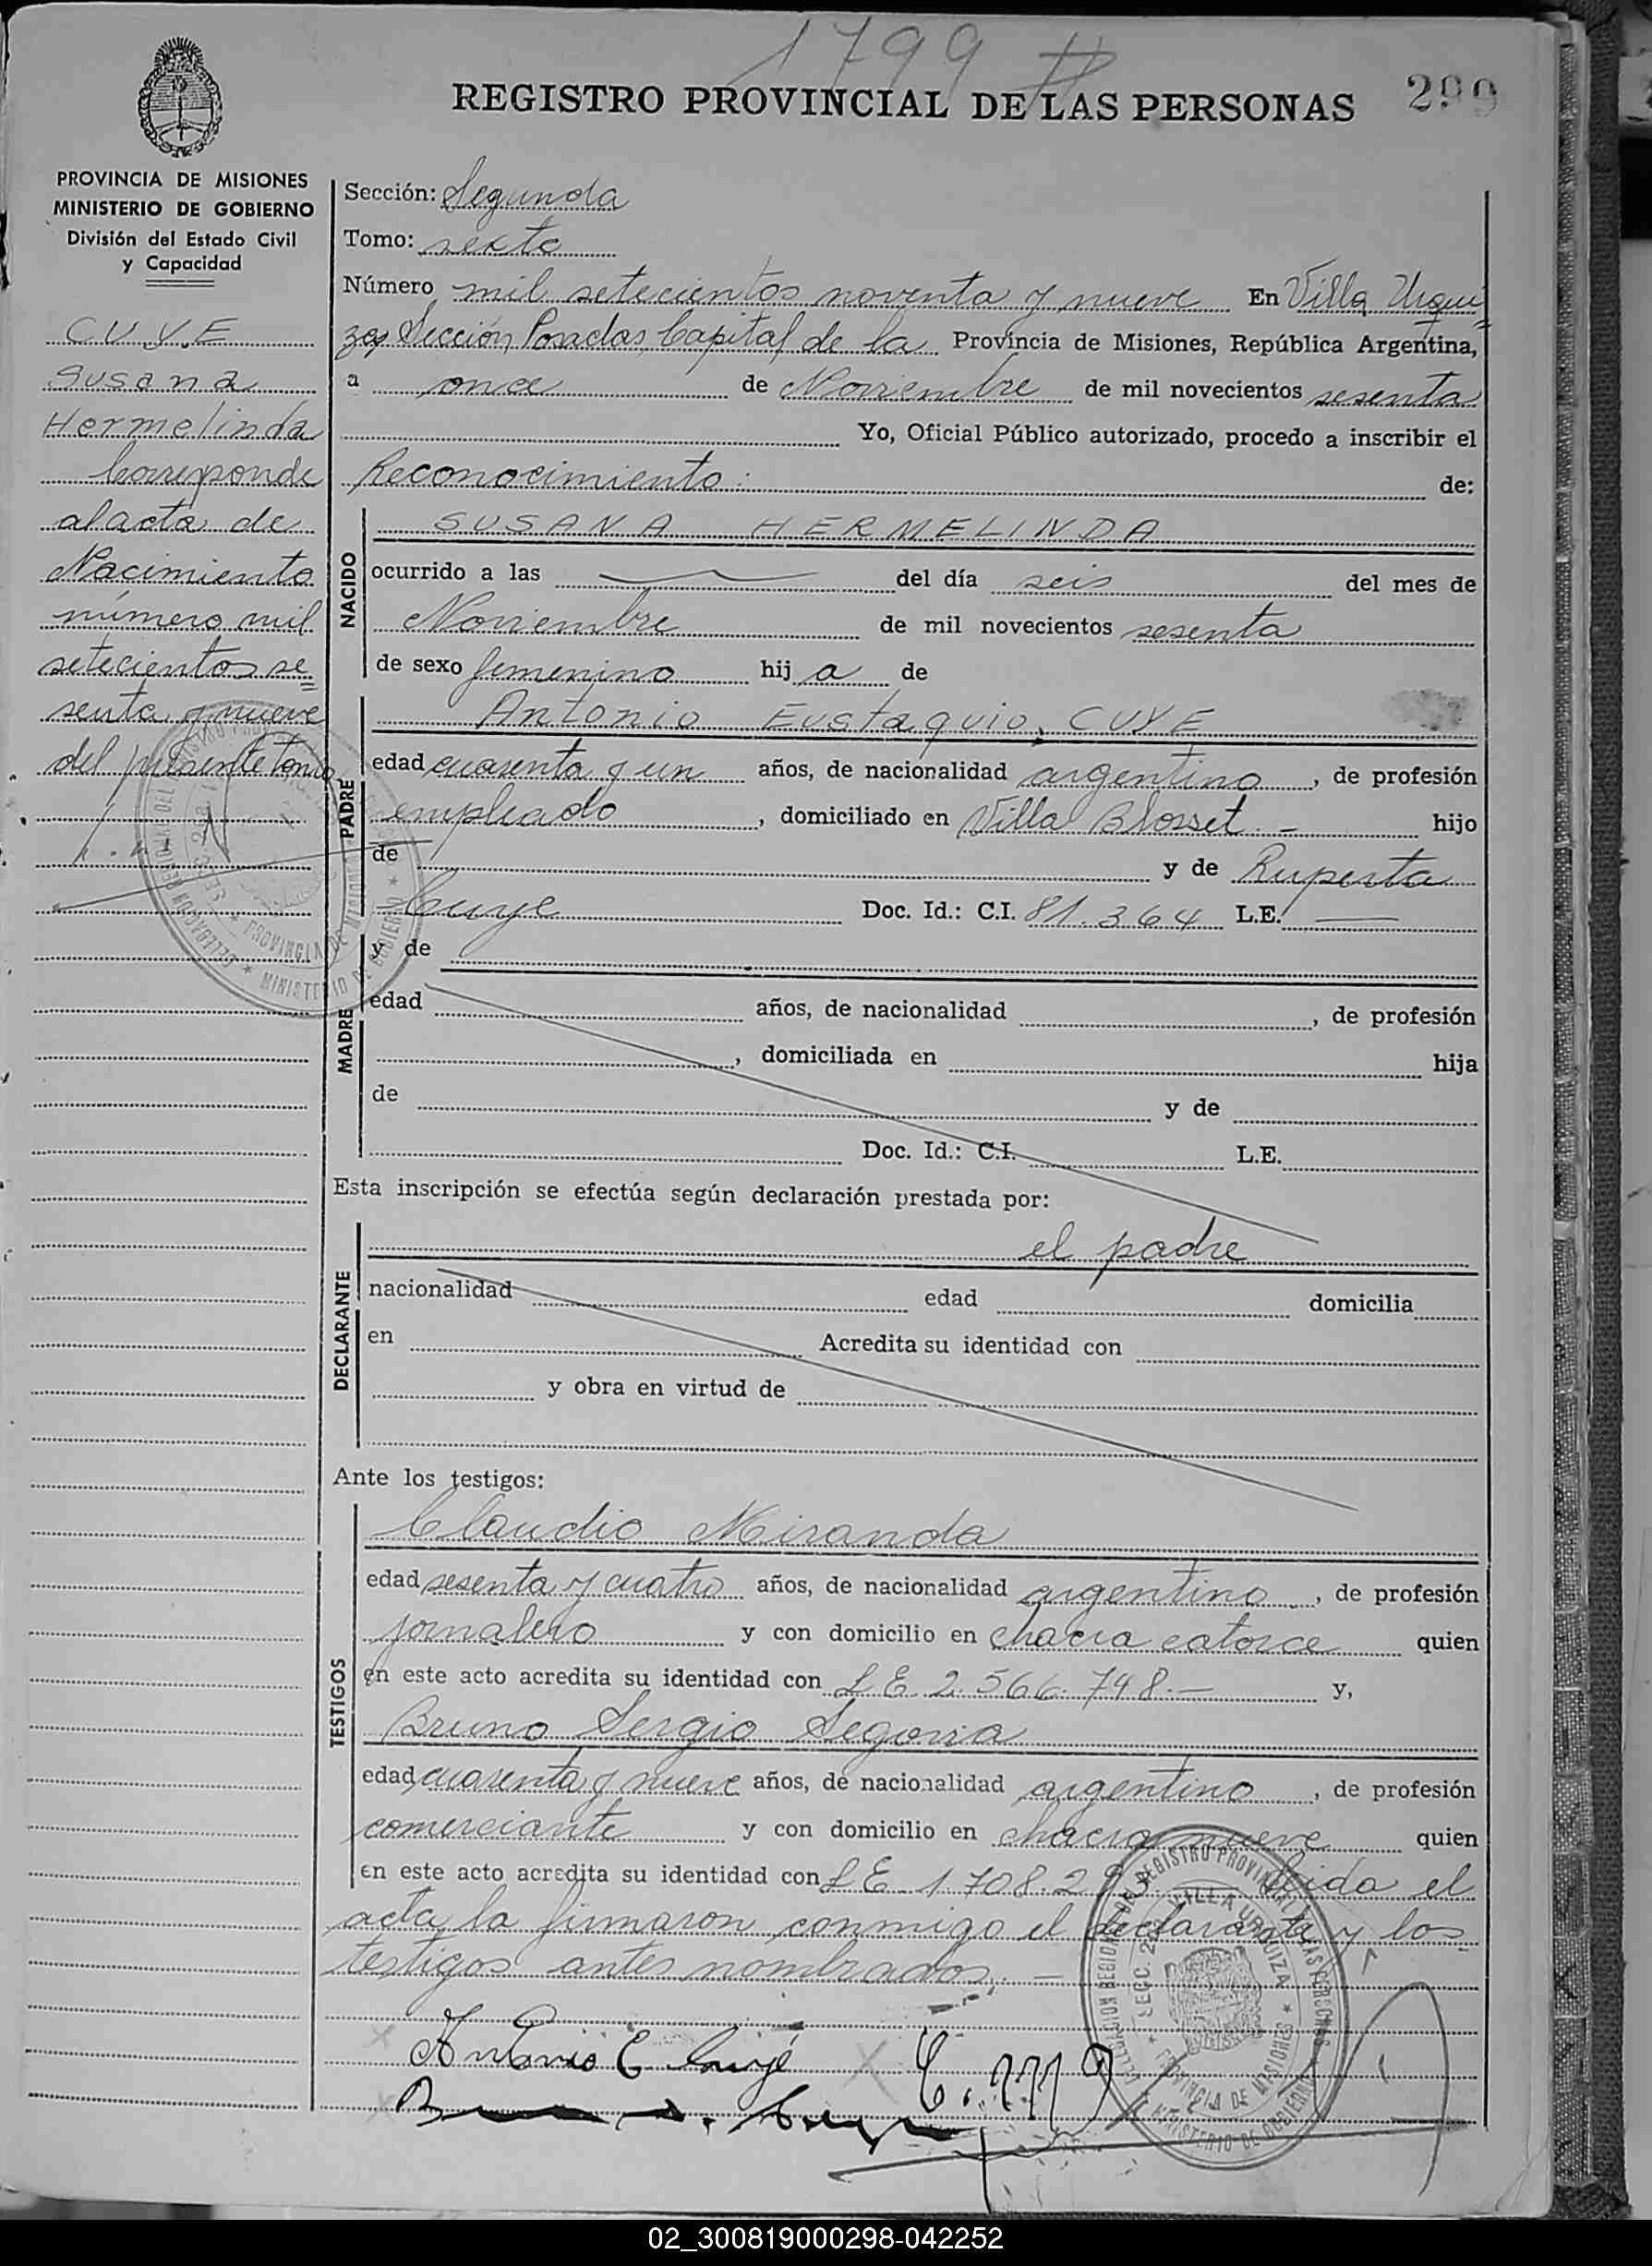 1799
REGISTRO PROVINCIAL DE LAS PERSONAS
299
PROVINCIA DE MISIONES
MINISTERIO DE GOBIERNO
División del Estado Civil
y Capacidad
CUYE
Susana
Hermelinda
Corresponde
al acta de
Nacimiento
número mil
setecientos se=
senta y nueve
del presente tomo
Sección: Segunda
Tomo: sexto
Número mil setecientos noventa y nueve En Villa Urqui=
za, Sección Posadas, Capital de la Provincia de Misiones, República Argentina,
a once de Noviembre de mil novecientos sesenta
Yo, Oficial Público autorizado, procedo a inscribir el
Reconocimiento: de:
NACIDO
SUSANA HERMELINDA
ocurrido a las del día seis del mes de
Noviembre de mil novecientos sesenta
de sexo femenino hij a de
PADRE
Antonio Eustaquio, CUYE
edad cuarenta y un años, de nacionalidad argentino, de profesión
empleado, domiciliado en Villa Blosset. - hijo
de y de Ruperta
Cuye Doc. Id.: C.I. 81.364 L.E.
MADRE
y de
edad años, de nacionalidad , de profesión
, domiciliada en hija
de y de
Doc. Id.: C.I. L.E.
Esta inscripción se efectúa según declaración prestada por:
DECLARANTE
el padre
nacionalidad edad domicilia
en Acredita su identidad con
y obra en virtud de
Ante los testigos:
TESTIGOS
Claudio Miranda
edad sesenta y cuatro años, de nacionalidad argentino, de profesión
jornalero y con domicilio en chacra catorce quien
en este acto acredita su identidad con L E 2.566.748.- y,
Bruno Sergio Segovia
edad cuarenta y nueve años, de nacionalidad argentino, de profesión
comerciante y con domicilio en chacra nueve quien
en este acto acredita su identidad con L E 1.708.29 Leida el
acta, la firmaron conmigo el declarante y los
testigos antes nombrados. -
Antonio E Cuyé
02_300819000298-042252